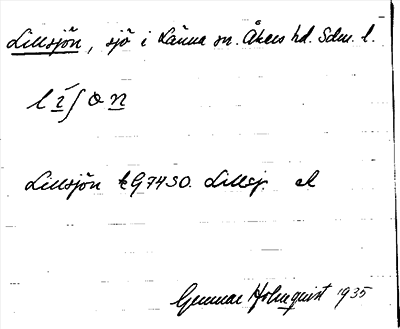 Lillsjön, sjö i Länna sn. Åkers hd. Sdm. l.
líʃɵn
Lillsjön k G74SO. Lillsj. ek
Gunnar Holmquist 1935